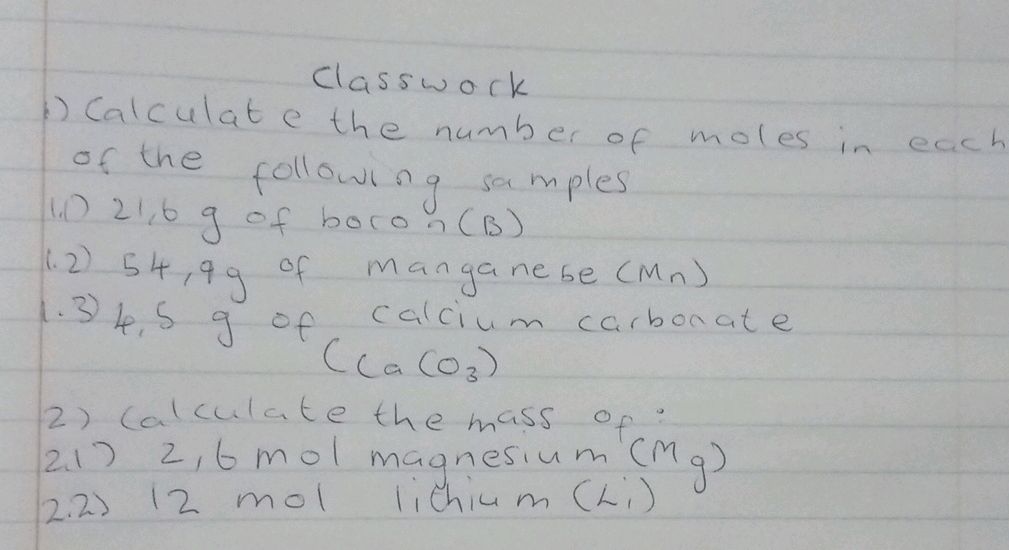 Classwork
1) Calculate the number of moles in each
of the following samples
1.1) 21,6 g of boron (B)
1.2) 54,9g of manganese (Mn)
1.3) 4,5 g of calcium carbonate
(CaCO₃)
2) Calculate the mass of:
2.1) 2,6 mol magnesium (Mg)
2.2) 12 mol lithium (Li)